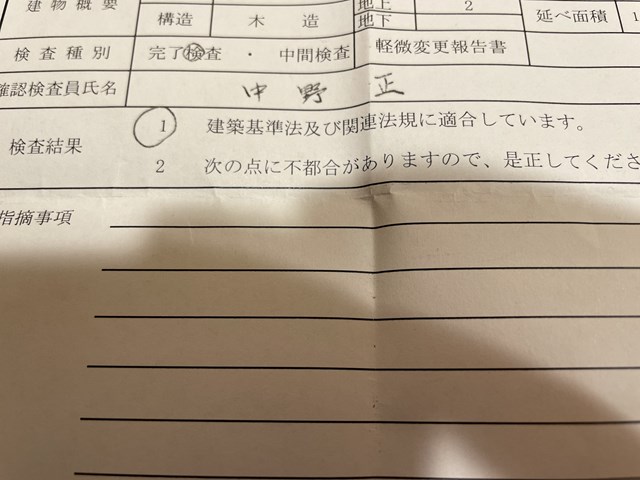 建物概要 構造 木造 地上 2 地下 延べ面積 1
検査種別 完了検査 ・ 中間検査 軽微変更報告書
確認検査員氏名 中野 正
検査結果 1 建築基準法及び関連法規に適合しています。
2 次の点に不都合がありますので、是正してくださ
指摘事項